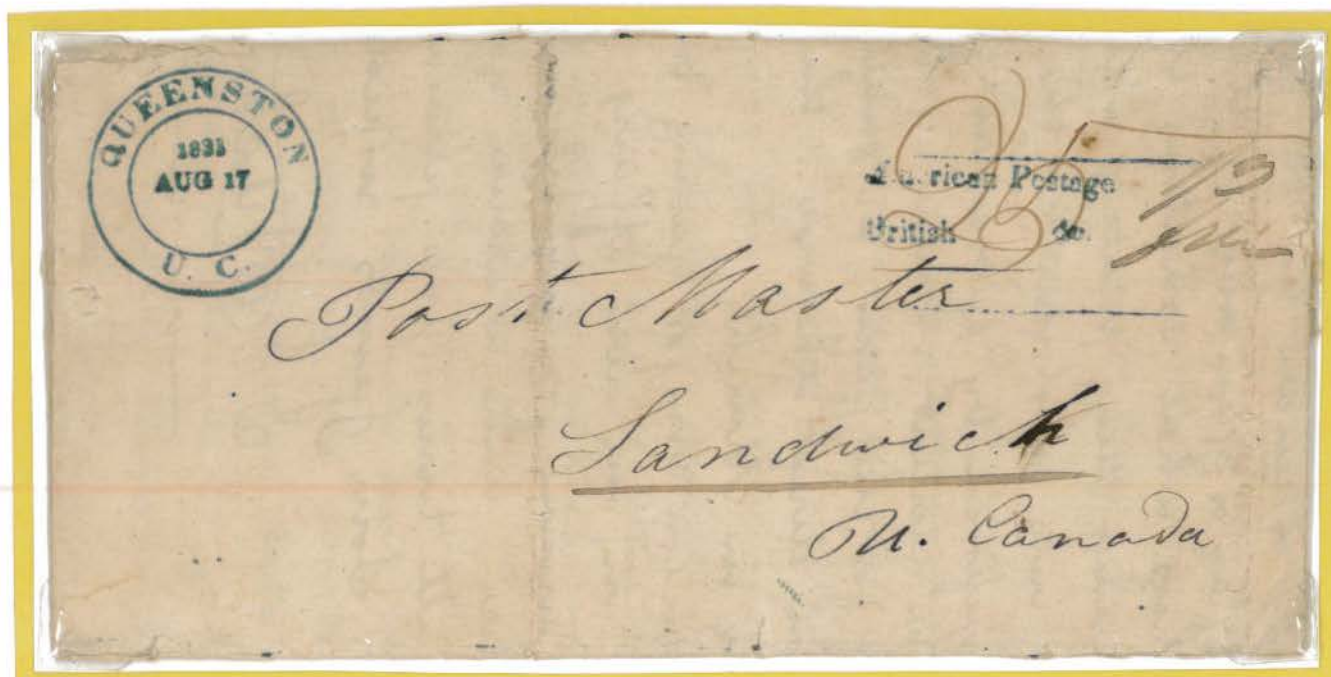 QUEENSTON
1831
AUG 17
U. C.
25
American Postage
British do.
Post Master
Sandwich
U. Canada